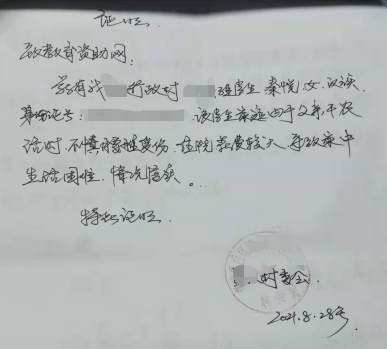 证明
致教育资助网:
兹有我 行政村 理学生 秦悦,女,汉族
身份证号: 该学生家庭由于父亲干农
活时,不慎 受伤,住院花费较大,导致家中
生活困难,情况属实。
特此证明
村委会
2021.8.28号